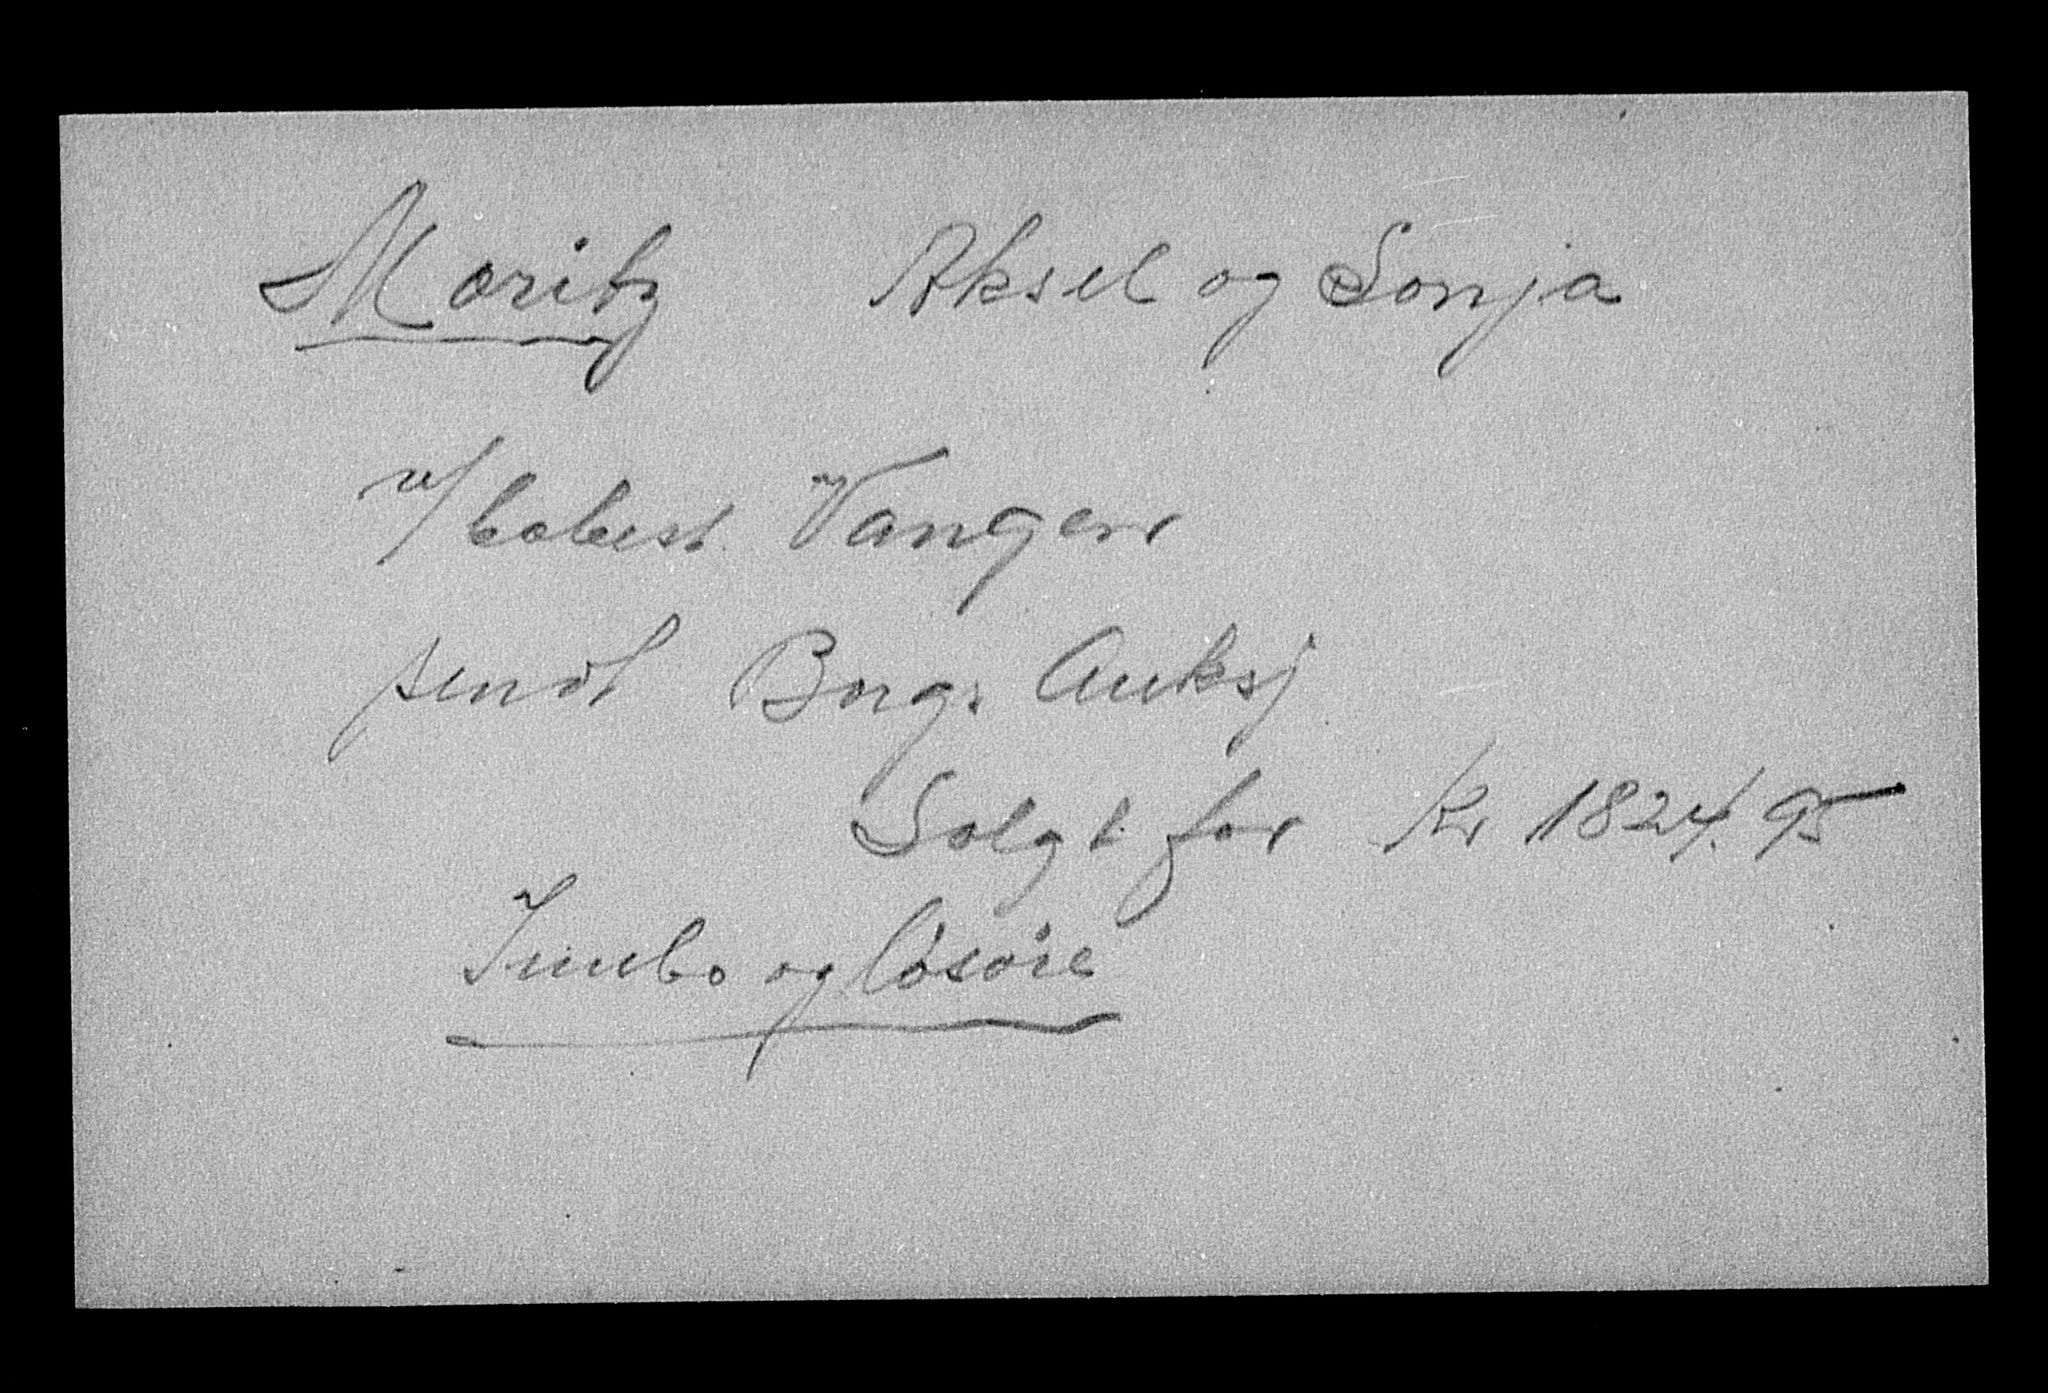 Moritz Aksel og Sonja
v/ bobest. Vangen
sendt Borgs Auksj
Solgt for Kr 1824.95
Innbo og løsøre